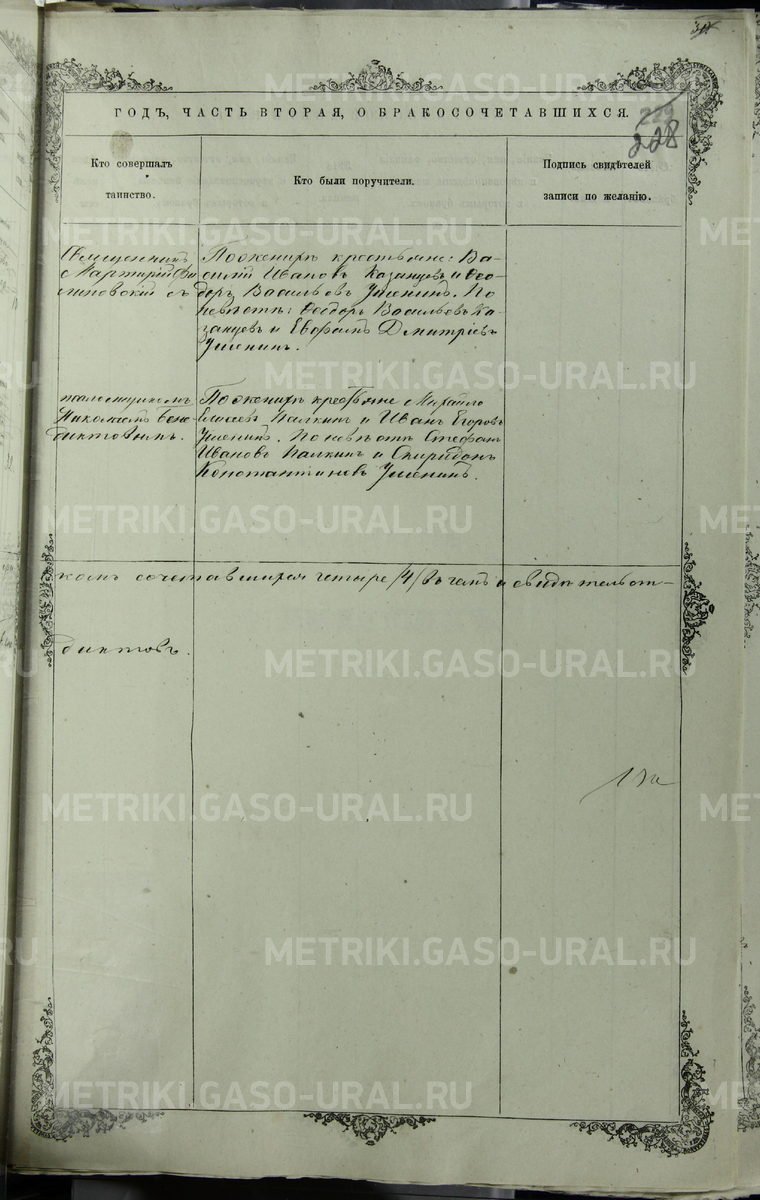 228
ГОДЪ, ЧАСТЬ ВТОРАЯ, О БРАКОСОЧЕТАВШИХСЯ.
Кто совершалъ
таинство.
Кто были поручители.
Подпись свидѣтелей
записи по желанію.
Священникъ
Мартирій
съ
По женихѣ крестьяне: Ва-
силій Ивановъ Казанцевъ и Ѳео-
доръ Васильевъ Ушенинъ. По
невѣстѣ: Ѳеодоръ Васильевъ Ка-
занцевъ и Евфимъ Дмитріевъ
Ушенинъ.
псаломщикомъ
Николаемъ Бене-
диктовымъ.
По женихѣ крестьяне Михайло
Елисеевъ Палкинъ и Иванъ Егоровъ
Ушенинъ. По невѣстѣ Стефанъ
Ивановъ Палкинъ и Спиридонъ
Константиновъ Ушенинъ.
комъ сочетавшихся четыре /4/ въ чемъ и свидѣтельст-
диктовъ.
METRIKI.GASO-URAL.RU